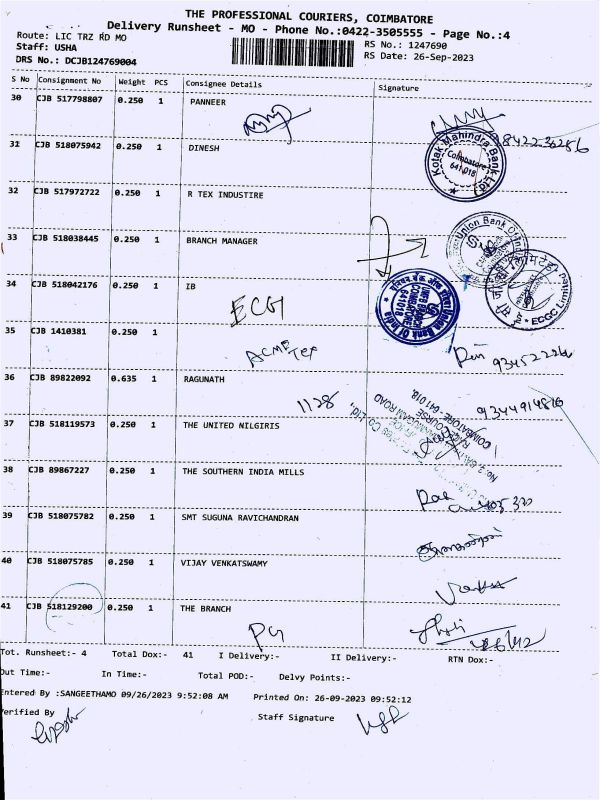 THE PROFESSIONAL COURIERS, COIMBATORE
Delivery Runsheet - MO - Phone No.:0422-3505555 - Page No.:4
Route: LIC TRZ RD MO
Staff: USHA
DRS No.: DCJB124769004
RS No.: 1247690
RS Date: 26-Sep-2023
S No Consignment No Weight PCS Consignee Details Signature
30 CJB 517798807 0.250 1 PANNEER
31 CJB 518075942 0.250 1 DINESH
Kotak Mahindra Bank Ltd
Coimbatore
641 018
32 CJB 517972722 0.250 1 R TEX INDUSTIRE
33 CJB 518038445 0.250 1 BRANCH MANAGER
Union Bank Of India
34 CJB 518042176 0.250 1 IB
ECG
Union Bank Of India
COIMBATORE
641018
ECGC Limited
35 CJB 1410381 0.250 1
ACME Tef
36 CJB 89822092 0.635 1 RAGUNATH
1128
9344914816
37 CJB 518119573 0.250 1 THE UNITED NILGIRIS
COIMBATORE - 641 018.
38 CJB 89867227 0.250 1 THE SOUTHERN INDIA MILLS
39 CJB 518075782 0.250 1 SMT SUGUNA RAVICHANDRAN
40 CJB 518075785 0.250 1 VIJAY VENKATSWAMY
41 CJB 518129200 0.250 1 THE BRANCH
PG
Tot. Runsheet:- 4 Total Dox:- 41 I Delivery:- II Delivery:- RTN Dox:-
Out Time:- In Time:- Total POD:- Delvy Points:-
Entered By :SANGEETHAMO 09/26/2023 9:52:08 AM Printed On: 26-09-2023 09:52:12
Verified By Staff Signature